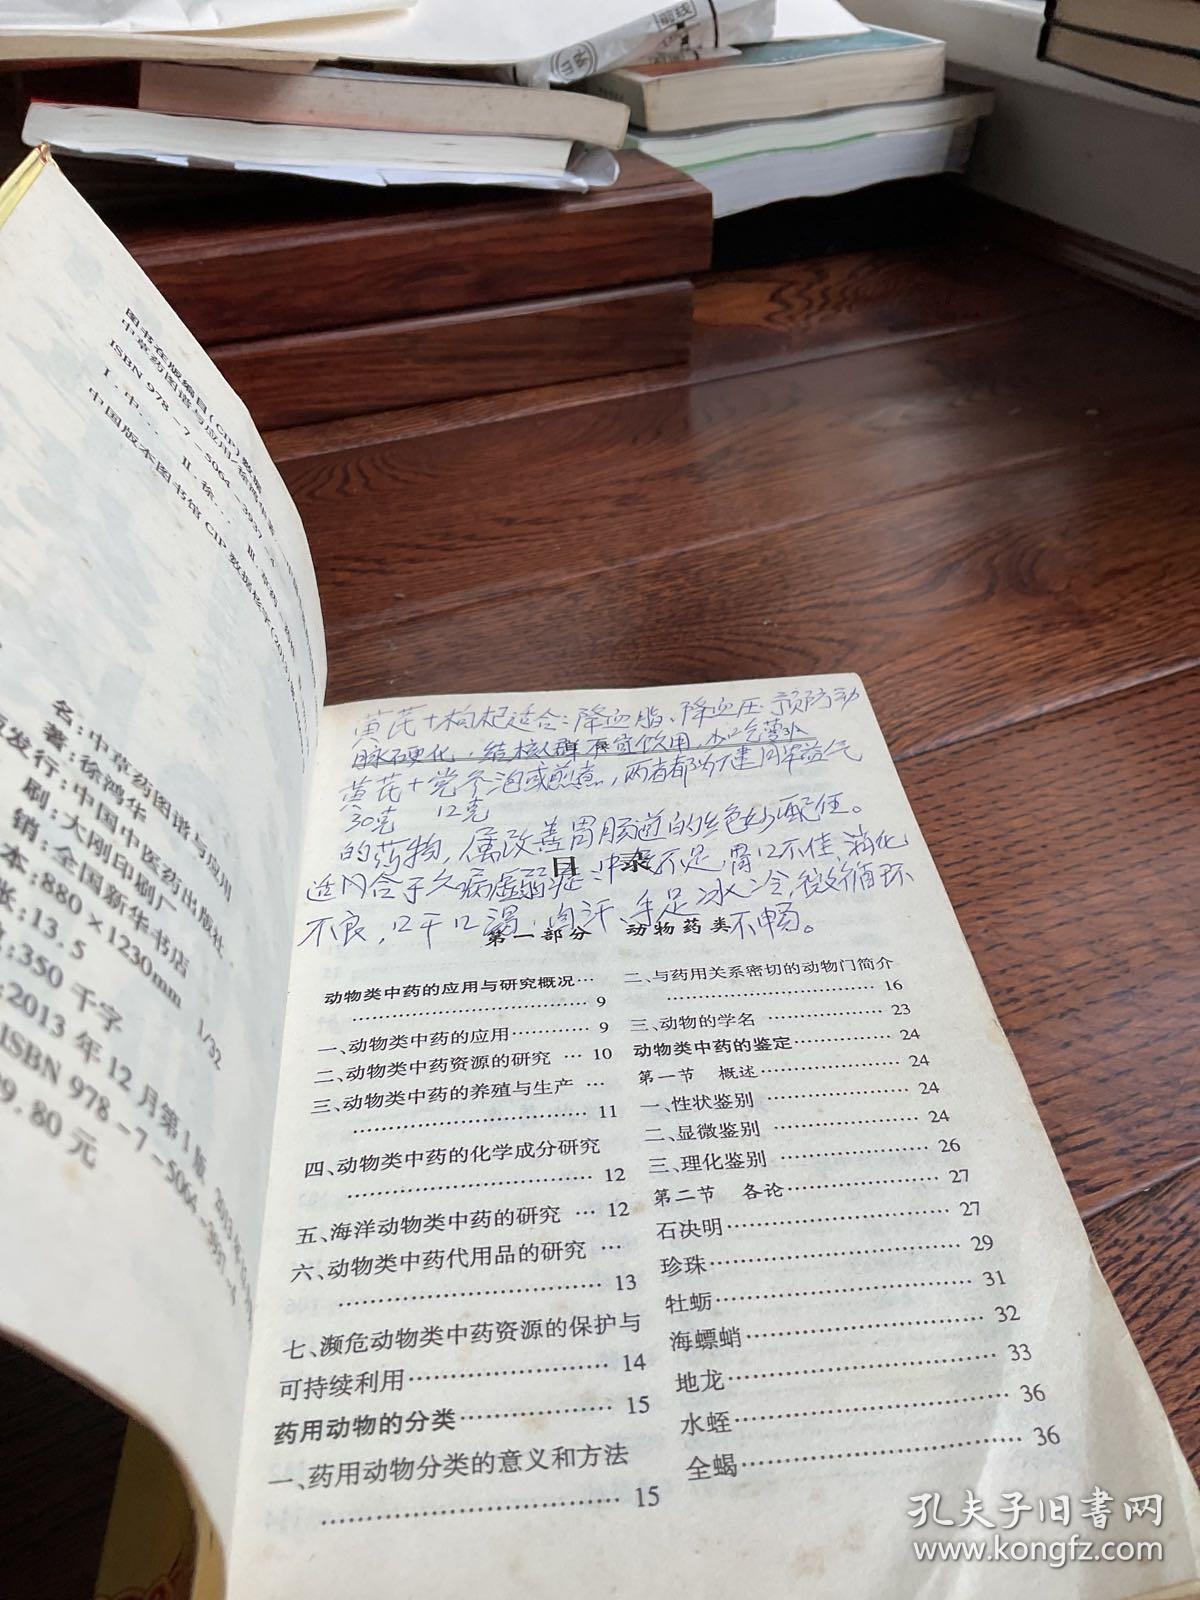 前线
图书在版编目(CIP)数据
中草药图谱与应用/徐鸿华著
ISBN 978-7-5064-3937-4
Ⅰ.中… Ⅱ.徐… Ⅲ.
中国版本图书馆 CIP 数据核字(2013)
名:中草药图谱与应用
著:徐鸿华
发行:中国中医药出版社
刷:大刚印刷厂
销:全国新华书店
本:880×1230mm 1/32
张:13.5
:350 千字
:2013 年 12 月第 1 版
ISBN 978-7-5064-3937-4
9.80 元
黄芪+枸杞适合:降血脂、降血压、预防动
脉硬化,结核人群不宜饮用,
黄芪+党参泡或煎煮,两者都为
30克 12克
的药物,属改善胃肠道的绝妙配伍。
适合于久病虚弱症、中气不足,胃口不佳、消化
不良,口干口渴,自汗、手足冰冷,微循环
不畅。
目录
第一部分 动物药类
动物类中药的应用与研究概况…
………………………… 9
一、动物类中药的应用………… 9
二、动物类中药资源的研究 … 10
三、动物类中药的养殖与生产 …
………………………… 11
四、动物类中药的化学成分研究
………………………… 12
五、海洋动物类中药的研究 … 12
六、动物类中药代用品的研究 …
………………………… 13
七、濒危动物类中药资源的保护与
可持续利用………………… 14
药用动物的分类……………… 15
一、药用动物分类的意义和方法
………………………… 15
二、与药用关系密切的动物门简介
………………………… 16
三、动物的学名 …………… 23
动物类中药的鉴定…………… 24
第一节 概述………………… 24
一、性状鉴别 ……………… 24
二、显微鉴别 ……………… 24
三、理化鉴别 ……………… 26
第二节 各论………………… 27
石决明……………………… 27
珍珠………………………… 29
牡蛎………………………… 31
海螵蛸……………………… 32
地龙………………………… 33
水蛭………………………… 36
全蝎………………………… 36
孔夫子旧书网
www.kongfz.com